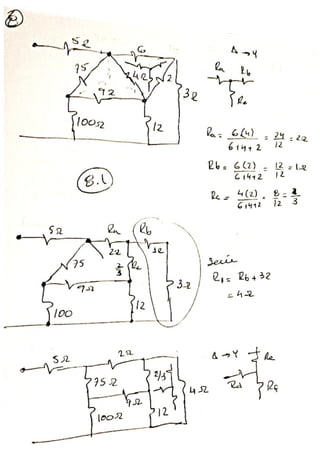 8
5Ω 6
Δ → Y
75 4Ω 2 3Ω
Ra Rb
9Ω
Rc
100Ω 12
Ra = 6(4) / 6+4+2 = 24 / 12 = 2Ω
Rb = 6(2) / 6+4+2 = 12 / 12 = 1Ω
Rc = 4(2) / 6+4+2 = 8 / 12 = 2 / 3
8.1
5Ω Ra Rb
2Ω 1Ω
75 2/3 Rc
9Ω 3Ω
100 12
serie
R1 = Rb + 3Ω
= 4Ω
5Ω 2Ω
Δ → Y
75Ω 2/3 4Ω
9Ω
100Ω 12